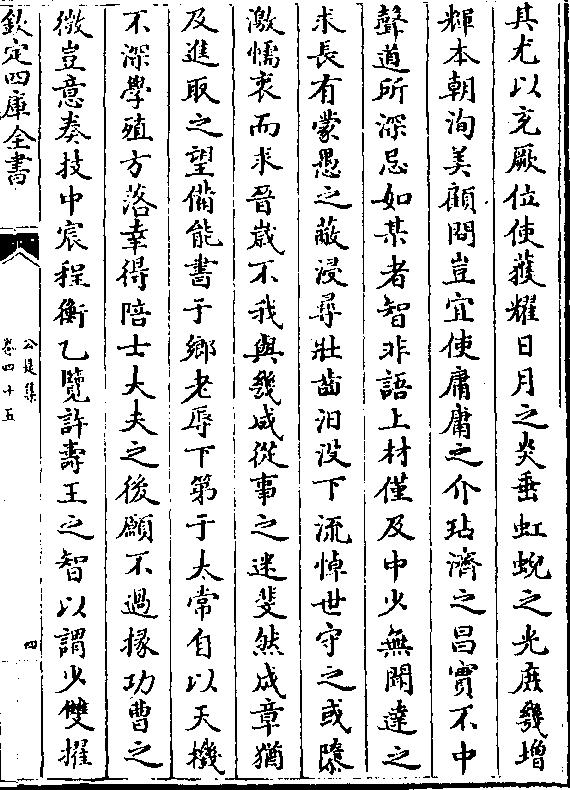 其尤以充厥位使䕶耀日月之炎垂虹蜺之光庶幾增
輝本朝洵美顧問豈宜使庸庸之介玷濟之昌實不中
聲道所深忌如某者智非語上材僅及中少無聞達之
求長有蒙愚之蔽浸尋壯齒汨没下流悼世守之或隳
激懦衷而求晉歲不我與幾成從事之迷斐然成章猶
及進取之望備能書于鄉老辱下第于太常自以天機
不深學殖方落幸得陪士大夫之後願不過掾功曹之
微豈意奏技中宸程衡乙覽許壽王之智以謂少雙擢
欽定四庫全書
公是集
卷四十五
四